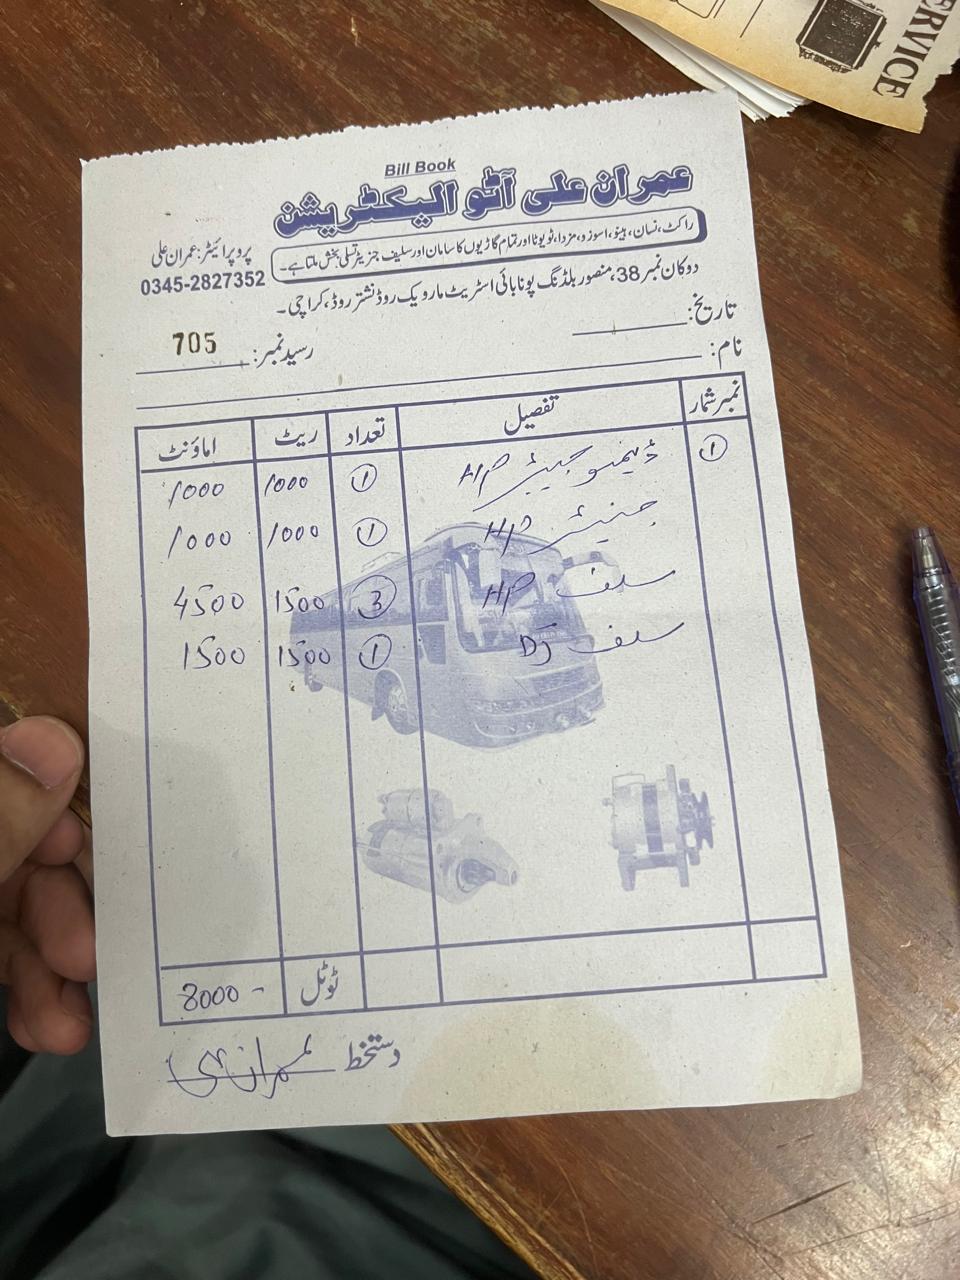 SERVICE
Bill Book
عمران علی آٹو الیکٹریشن
راکٹ، نسان، ہینو، اسوزو، مزدا، ٹویوٹا اور تمام گاڑیوں کا سامان اور سلیف جنریٹر تسلی بخش ملتا ہے۔
پروپرائیٹر: عمران علی
0345-2827352
دوکان نمبر 38، منصور بلڈنگ پونا بائی اسٹریٹ مارویک روڈ نشتر روڈ، کراچی۔
تاریخ:
رسید نمبر: 705
نام:
نمبر شمار تفصیل تعداد ریٹ اماؤنٹ
① H/P ① 1000 1000
جنیٹر H/P ① 1000 1000
سلف H/P ③ 1500 4500
سلف DJ ① 1500 1500
ٹوٹل 8000 -
دستخط